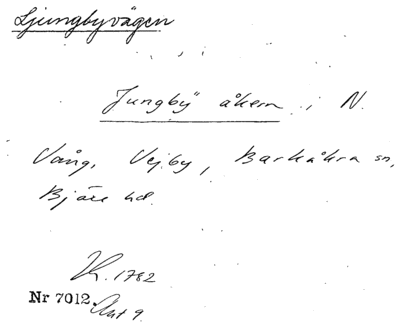 Ljungbyvägen
"Jungby" åkern i N.
Vång, Vejby, Barkåkra sn,
Bjäre hd.
K. 1782
Nr 7012. Akt 9.